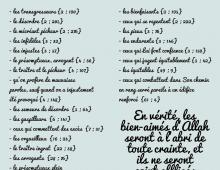 - les transgresseurs {2 : 190}
- le désordre {2 : 205}
- le mécréant pécheur {2 : 276}
- les infidèles {3 : 32}
- les injustes {3 : 57}
- le présomptueux, arrogant {4 : 36}
- le traître et le pécheur {4 : 107}
- qu'on profère de mauvaises
paroles, sauf quand on a injustement
été provoqué {4 : 148}
- les semeurs de désordre {5 : 64}
- les gaspilleurs {6 : 141}
- ceux qui commettent des excès {7 : 31}
- les orgueilleux {16 : 23}
- le traître ingrat {22 : 38}
- les arrogants {28 : 76}
- le présomptueux plein
- les bienfaisants {2 : 195}
- ceux qui se repentent {2 : 222}
- les pieux {3 : 76}
- les endurants {3 : 146}
- ceux qui Lui font confiance {3 : 159}
- ceux qui jugent équitablement {5 : 42}
- les équitables {49 : 9}
- ceux qui combattent dans Son chemin
en rang serré pareils à un édifice
renforcé {61 : 4}
En vérité, les
bien-aimés d'Allah
seront à l'abri de
toute crainte, et
ils ne seront